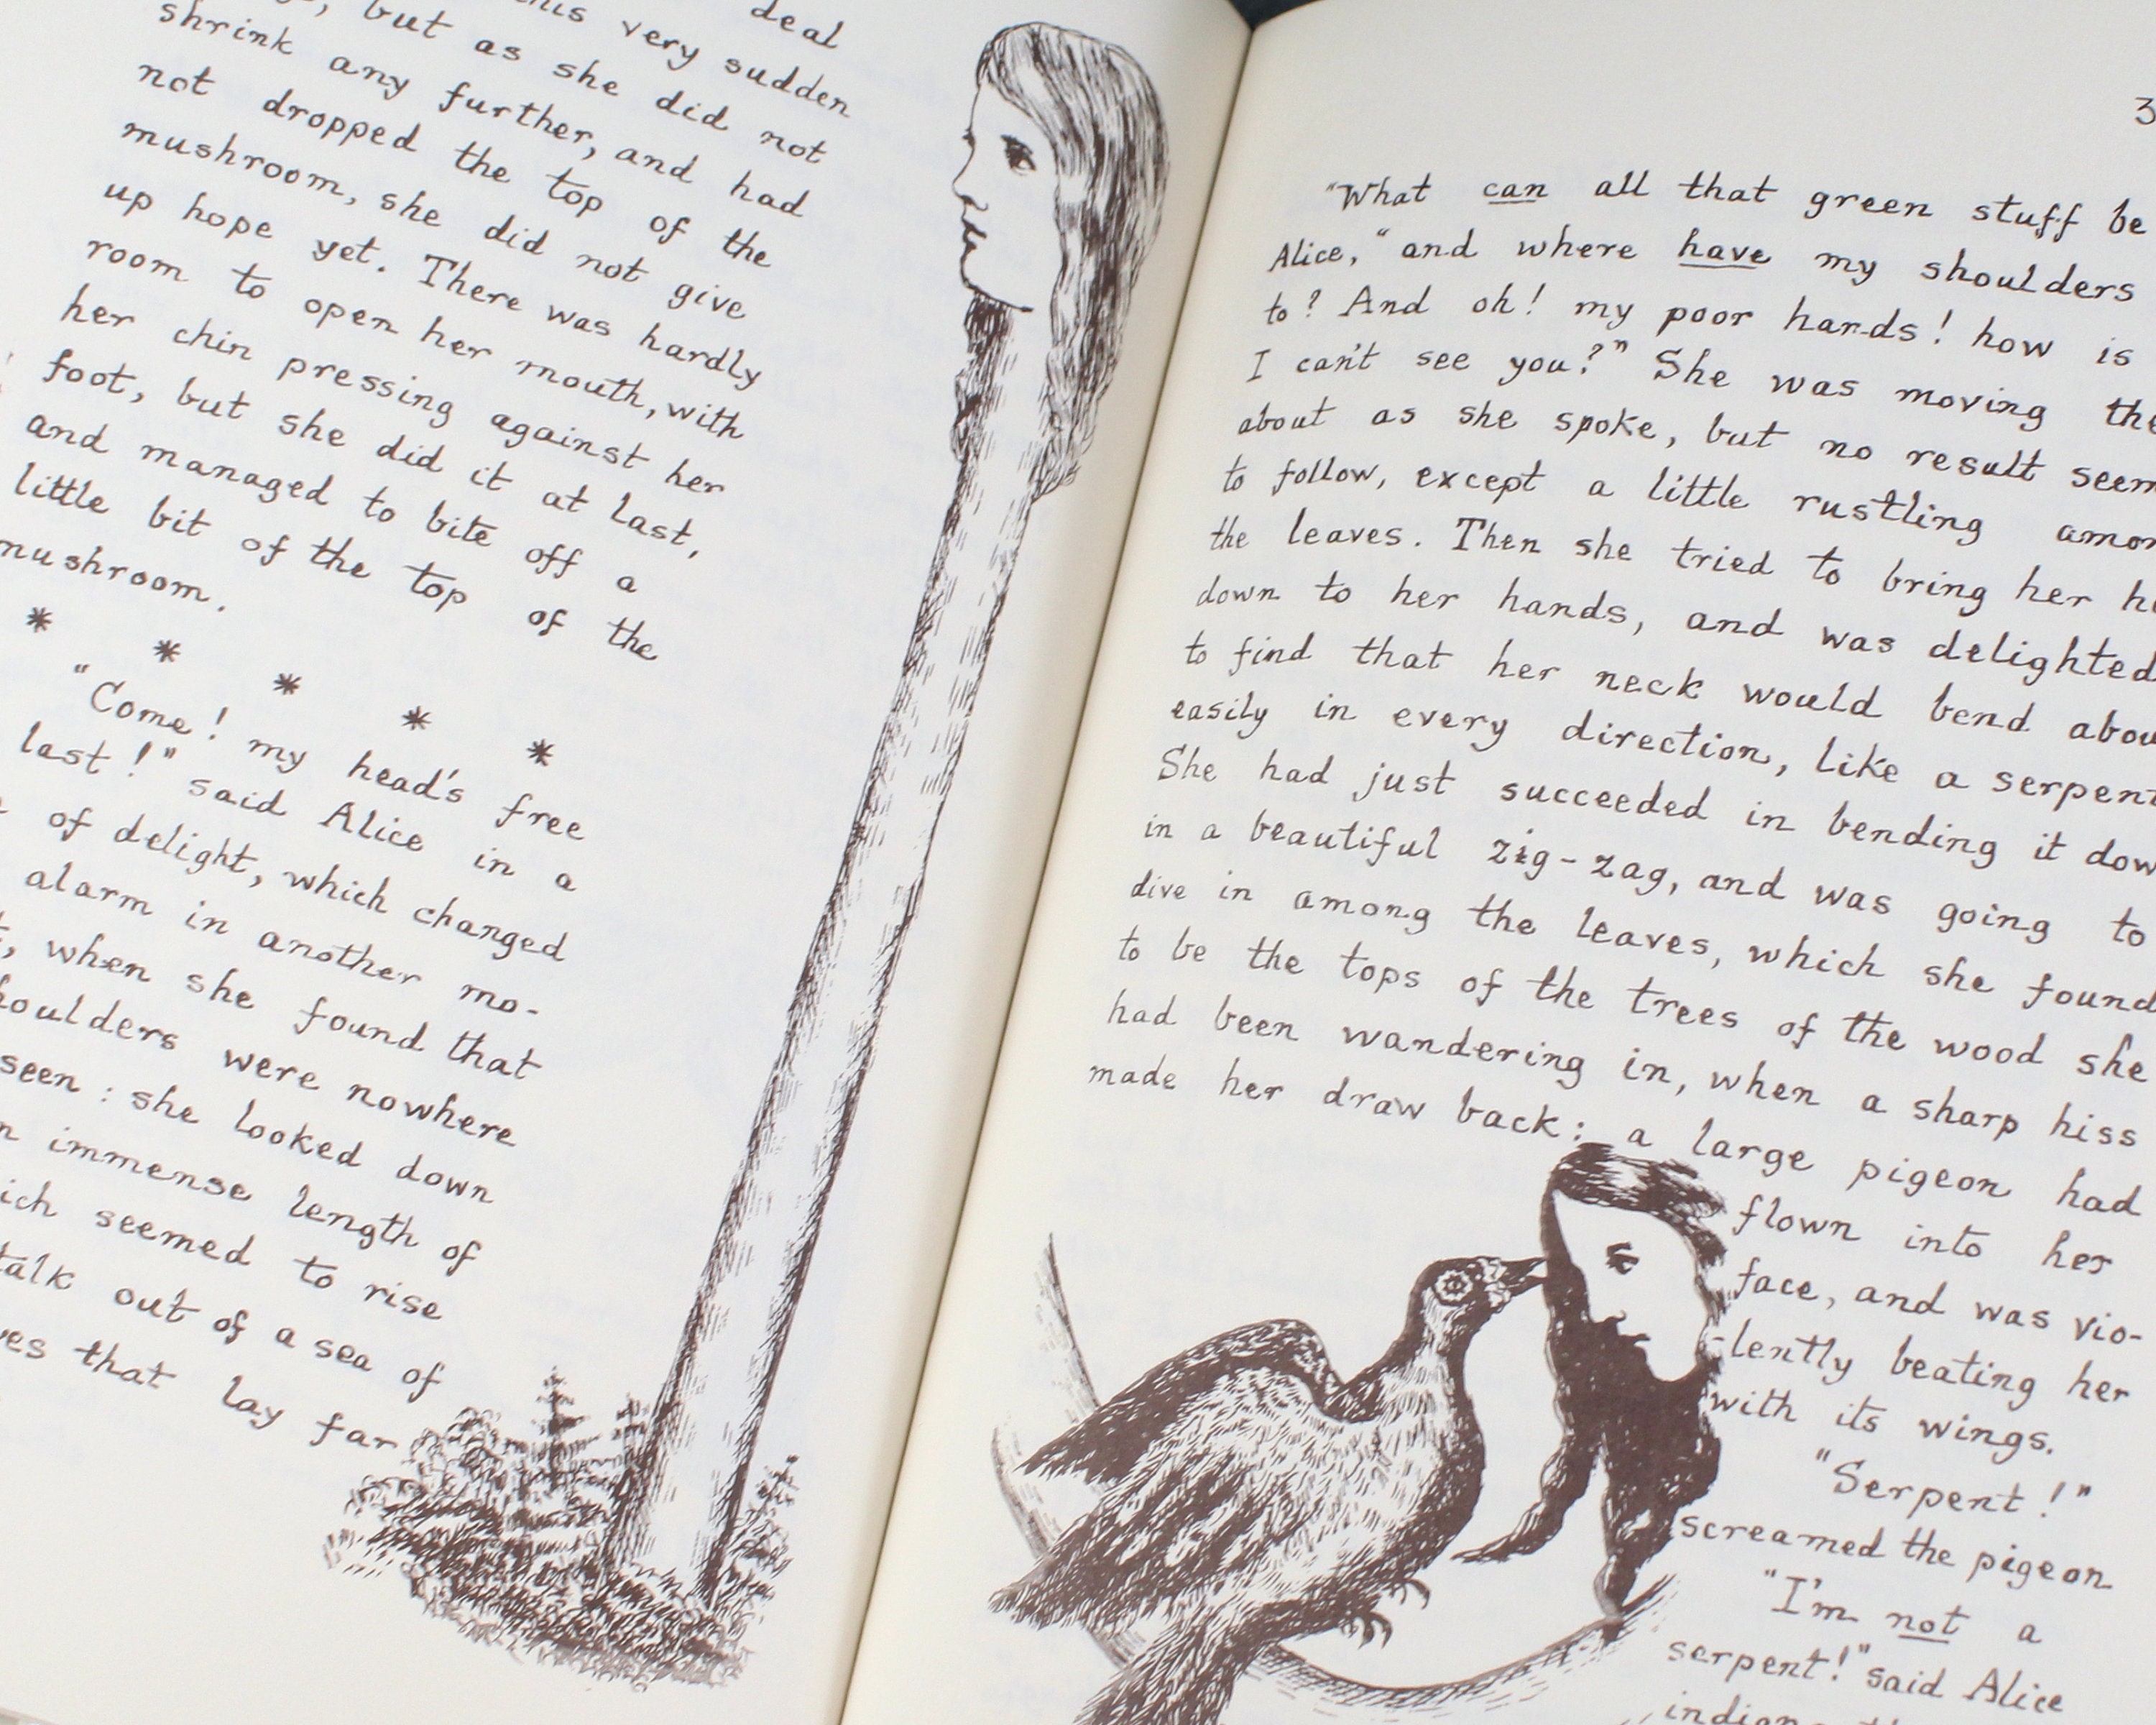 deal
but as she did not
this very sudden
shrink any further, and had
not dropped the top of the
mushroom, she did not give
up hope yet. There was hardly
room to open her mouth, with
her chin pressing against her
foot, but she did it at last,
and managed to bite off a
little bit of the top of the
mushroom.
* * * * *
"Come! my head's free
last!" said Alice in a
of delight, which changed
alarm in another mo-
when she found that
shoulders were nowhere
seen: she looked down
immense length of
which seemed to rise
stalk out of a sea of
leaves that lay far
3
"What can all that green stuff be
Alice, "and where have my shoulders
to? And oh! my poor hands! how is
I can't see you?" She was moving the
about as she spoke, but no result seem
to follow, except a little rustling amon
the leaves. Then she tried to bring her he
down to her hands, and was delighted
to find that her neck would bend abou
easily in every direction, like a serpent
She had just succeeded in bending it dow
in a beautiful zig-zag, and was going to
dive in among the leaves, which she found
to be the tops of the trees of the wood she
had been wandering in, when a sharp hiss
made her draw back: a large pigeon had
flown into her
face, and was vio-
-lently beating her
with its wings.
"Serpent!"
screamed the pigeon.
"I'm not a
serpent!" said Alice